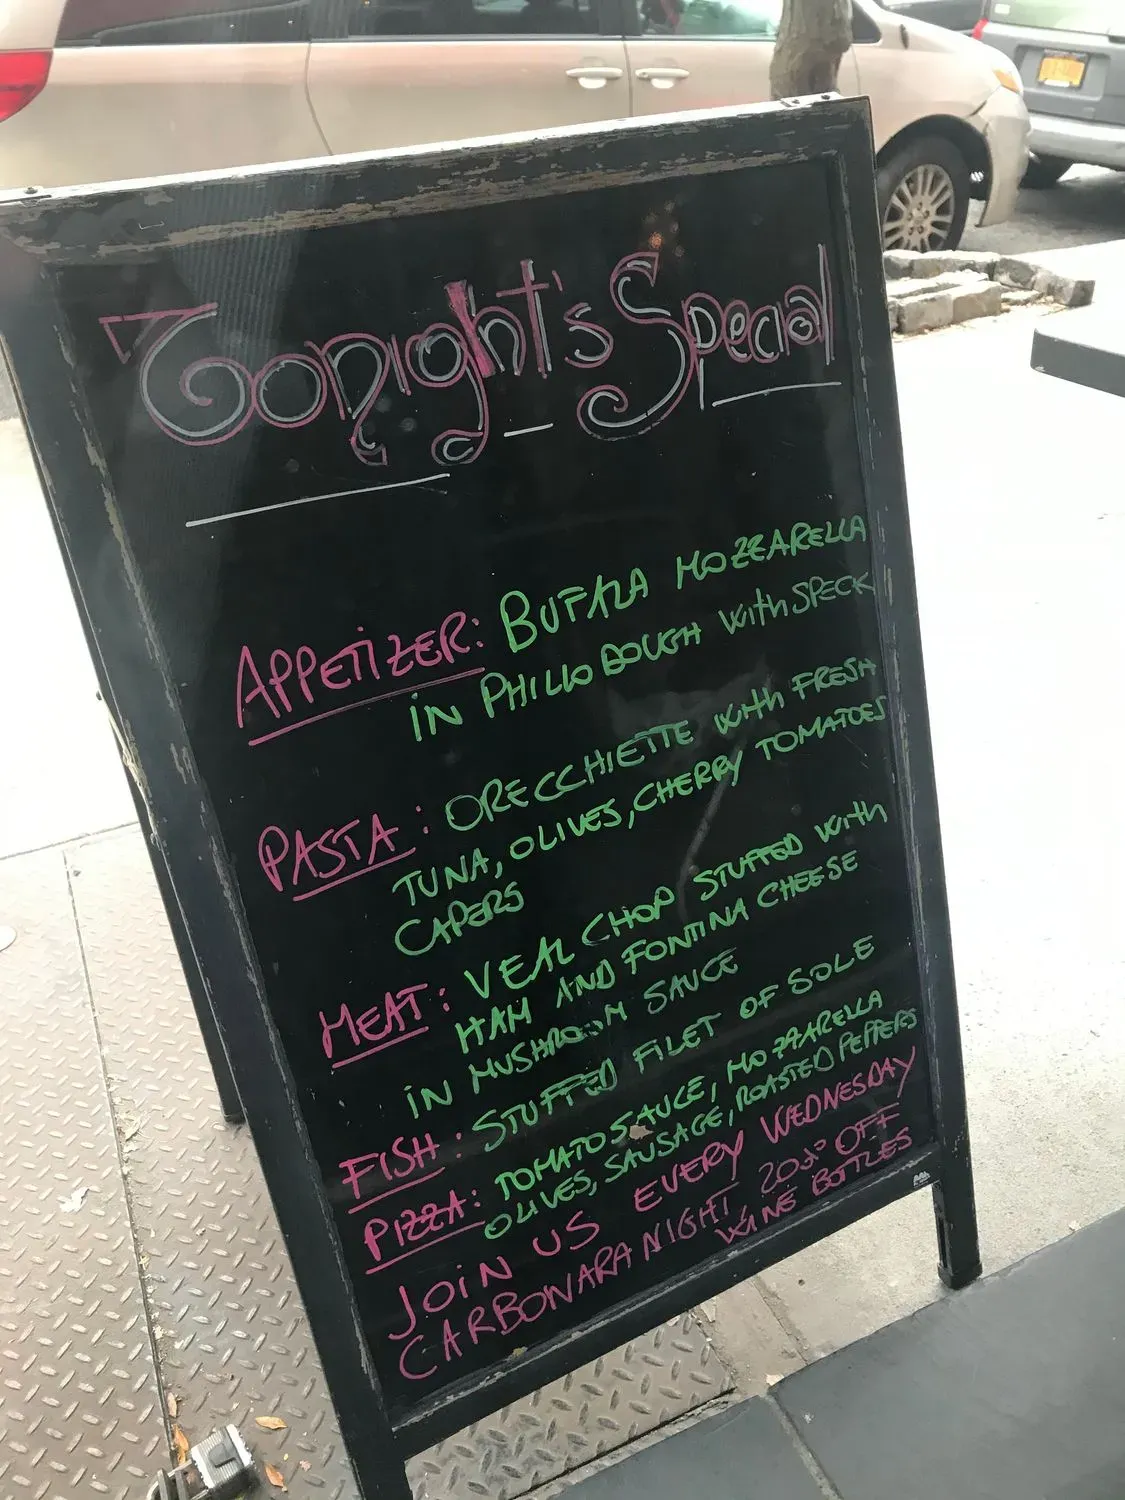 Tonight's Special
APPETIZER: BUFALA MOZZARELLA
IN PHILLO DOUGH WITH SPECK
PASTA: ORECCHIETTE WITH FRESH
TUNA, OLIVES, CHERRY TOMATOES
CAPERS
MEAT: VEAL CHOP STUFFED WITH
HAM AND FONTINA CHEESE
IN MUSHROOM SAUCE
FISH: STUFFED FILET OF SOLE
PIZZA: TOMATO SAUCE, MOZZARELLA
OLIVES, SAUSAGE, ROASTED PEPPERS
JOIN US EVERY WEDNESDAY
CARBONARA NIGHT 20% OFF
WINE BOTTLES